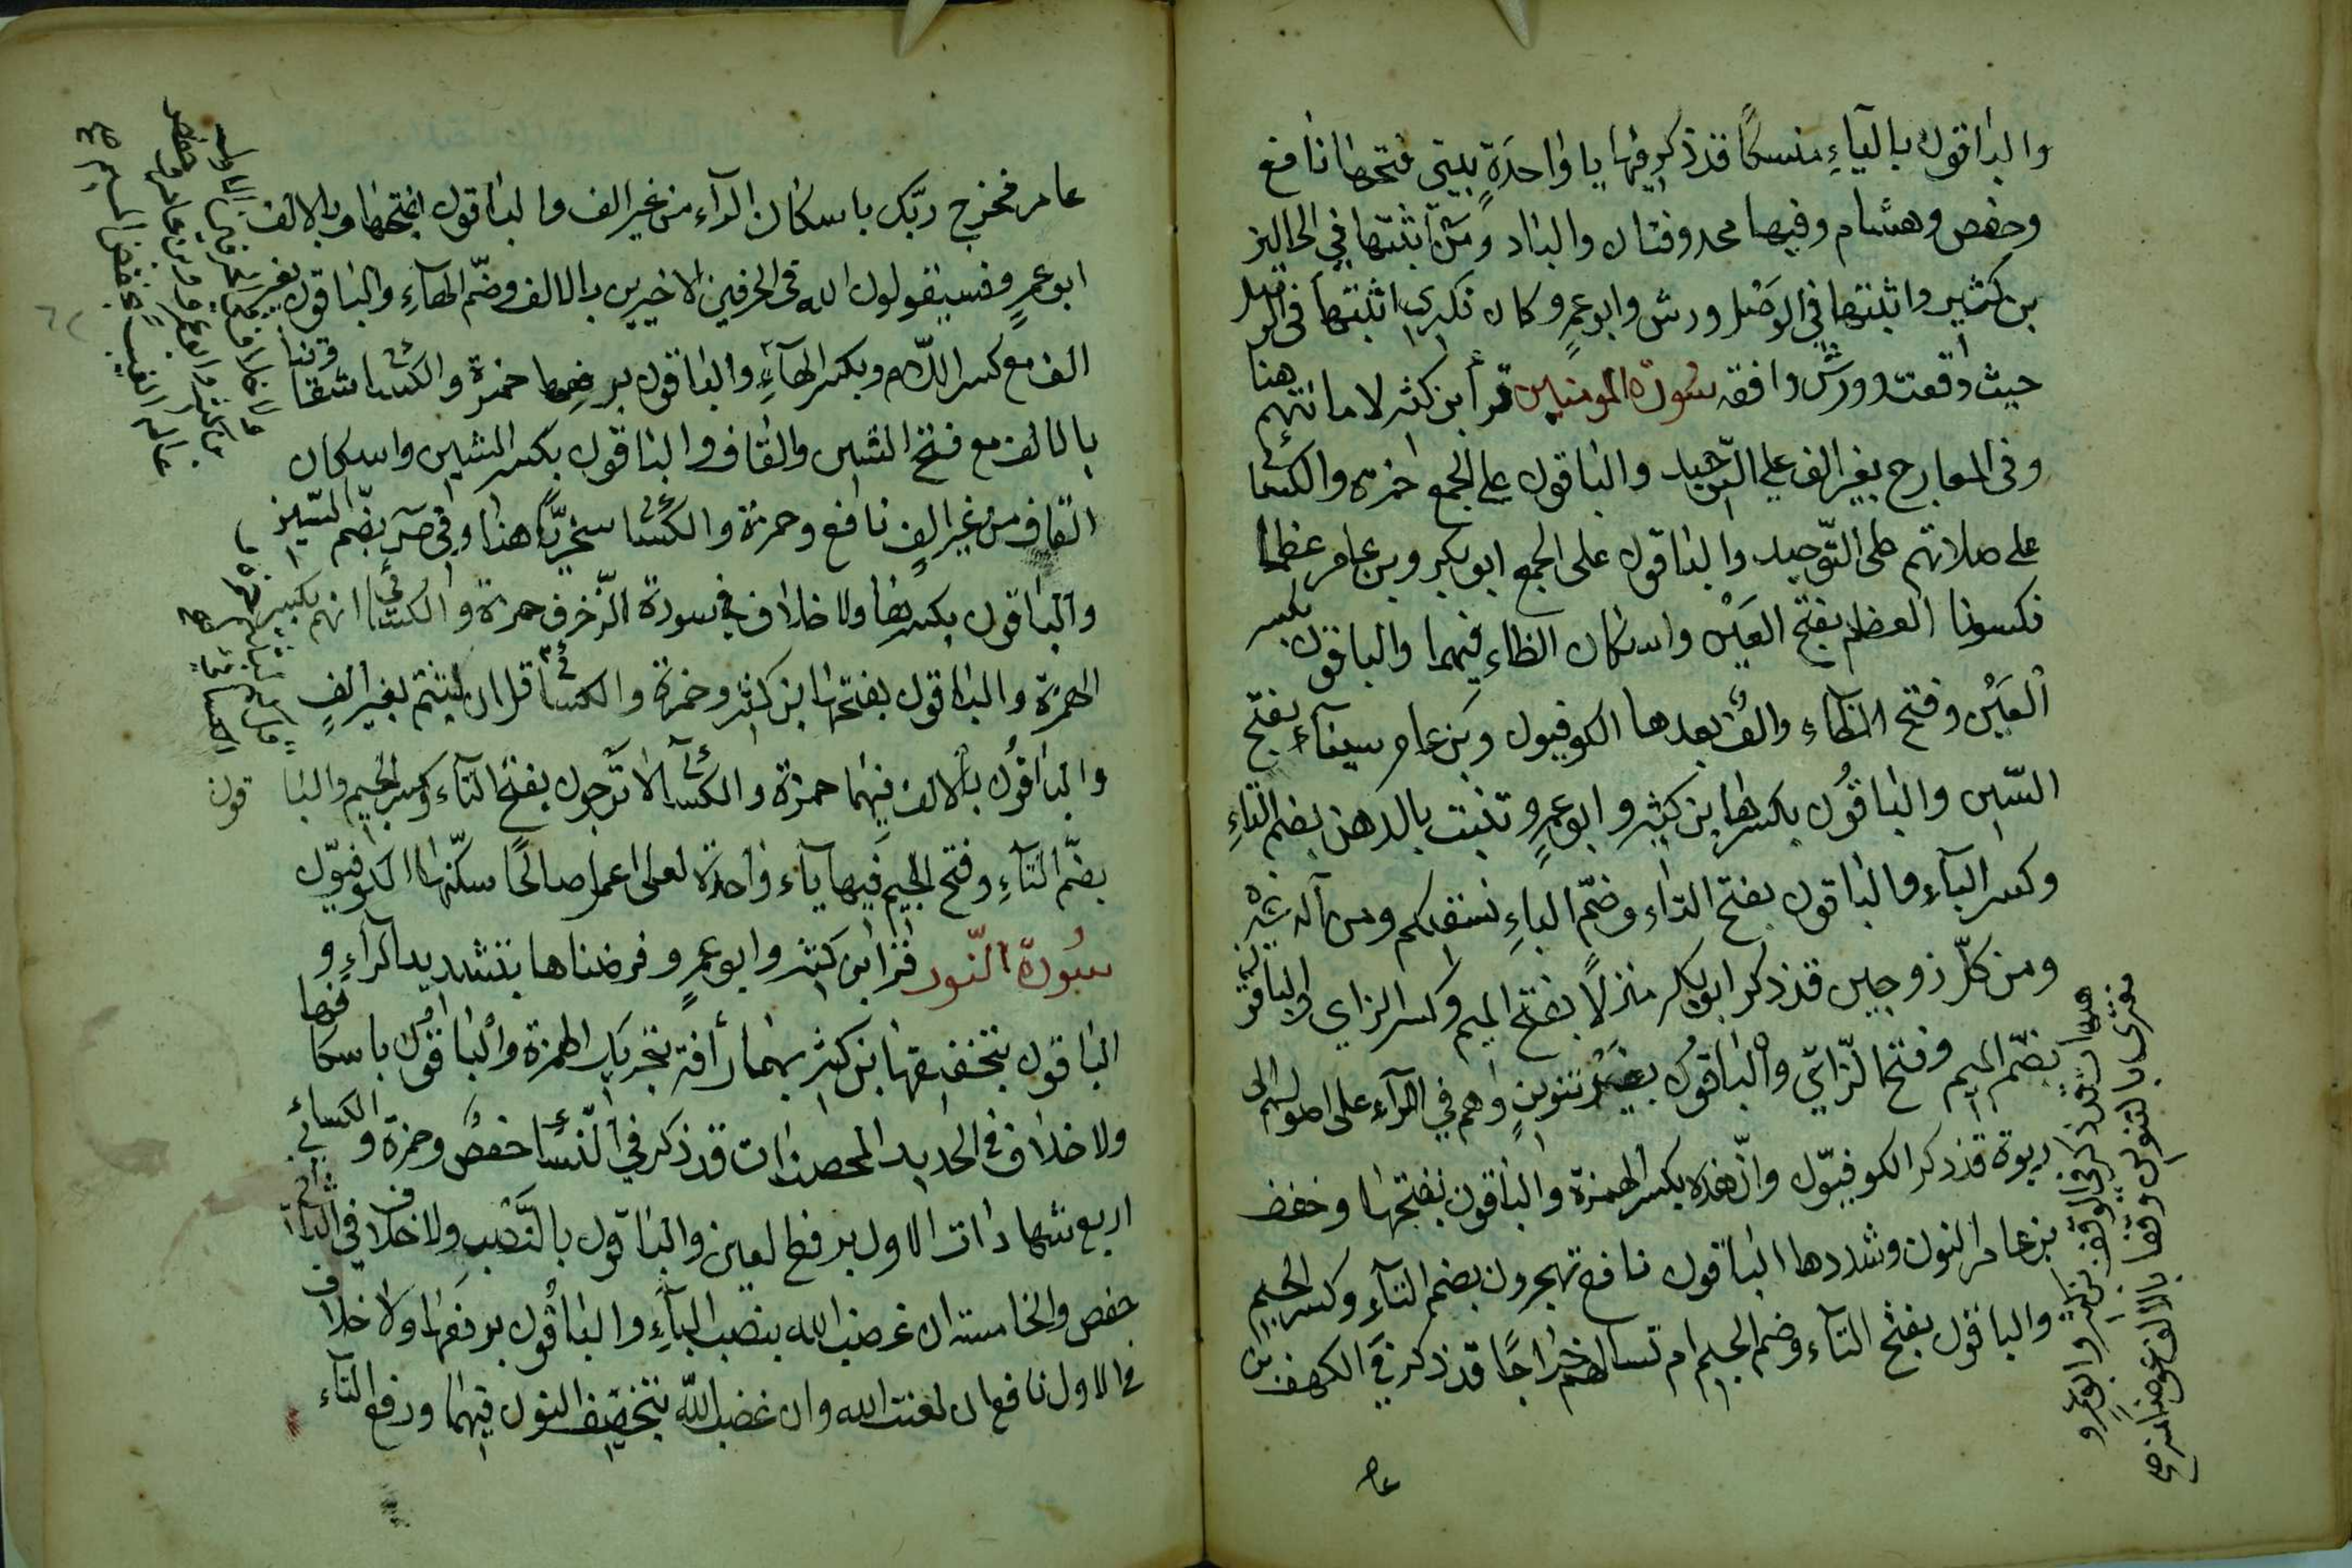 والباقون بالياء منسكا قد ذكر فيها يا واحدة بيتي فتحها نافع
وحفص وهشام وفيها محذوفتان والباد ومن اثبتها في الحالين
بن كثير واثبتها في الوصل ورش وابو عمرو وكان نكيرى اثبتها في الوصل
حيث وقعت وورش وافقه سورة المومنين قرأ ابن كثير لاماناتهم هنا
وفي المعارج بغير الف على التوحيد والباقون على الجمع حمزة والكسائي
على صلاتهم على التوحيد والباقون على الجمع ابو بكر وبن عامر عظما
فكسونا العظم بفتح العين واسكان الظاء فيهما والباقون بكسر
العين وفتح الظاء والف بعدها الكوفيون وبن عامر سيناء بفتح
السين والباقون بكسرها بن كثير وابو عمرو تنبت بالدهن بضم التاء
وكسر الباء والباقون بفتح التاء وضم الباء نسقيكم ومن اله غيره
ومن كل زوجين قد ذكر ابو بكر منزلا بفتح الميم وكسر الزاي والباقون
بضم الميم وفتح الزاي والباقون بغير تنوين وهم في الراء على اصولهم الى
ربوة قد ذكر الكوفيون وان هذه بكسر الهمزة والباقون بفتحها وخفف
بن عامر النون وشددها الباقون نافع تهجرون بضم التاء وكسر الجيم
والباقون بفتح التاء وضم الجيم ام تسالهم خراجا قد ذكر في الكهف ابن
تترى بالتنوين وقفا بالالف عوضا منه صح
هيهات قد ذكر في الوقف بن كثير وابو عمرو
عامر فخرج ربك باسكان الراء من غير الف والباقون بفتحها وبالالف
ابو عمرو فسيقولون الله في الحرفين الاخيرين بالالف وضم الهاء والباقون بغير
الف مع كسر اللام وبكسر الهاء والباقون برفعها حمزة والكسائي شقاوتنا
بالالف مع فتح الشين والقاف والباقون بكسر الشين واسكان
القاف من غير الف نافع وحمزة والكسائي سخريا هنا وفي ص بضم السين
والباقون بكسرها ولا خلاف في سورة الزخرف حمزة والكسائي انهم بكسر
الهمزة والباقون بفتحها ابن كثير وحمزة والكسائي قل ان لبثتم بغير الف
والباقون بالالف فيهما حمزة والكسائي لا ترجعون بفتح التاء وكسر الجيم والباقون
بضم التاء وفتح الجيم فيها ياء واحدة لعلى اعمل صالحا سكنها الكوفيون
سورة النور قرا ابن كثير وابو عمرو وفرضناها بتشديد الراء و
الباقون بتخفيفها بن كثير بهما رأفة بتحريك الهمزة والباقون باسكانها
ولا خلاف في الحديد المحصنات قد ذكر في النساء حفص وحمزة والكسائي
اربع شهادات الاول برفع العين والباقون بالنصب ولا خلاف في الثاني
حفص والخامسة ان غضب الله بنصب التاء والباقون برفعها ولا خلاف
في الاول نافع ان لعنت الله وان غضب الله بتخفيف النون فيهما ورفع التاء